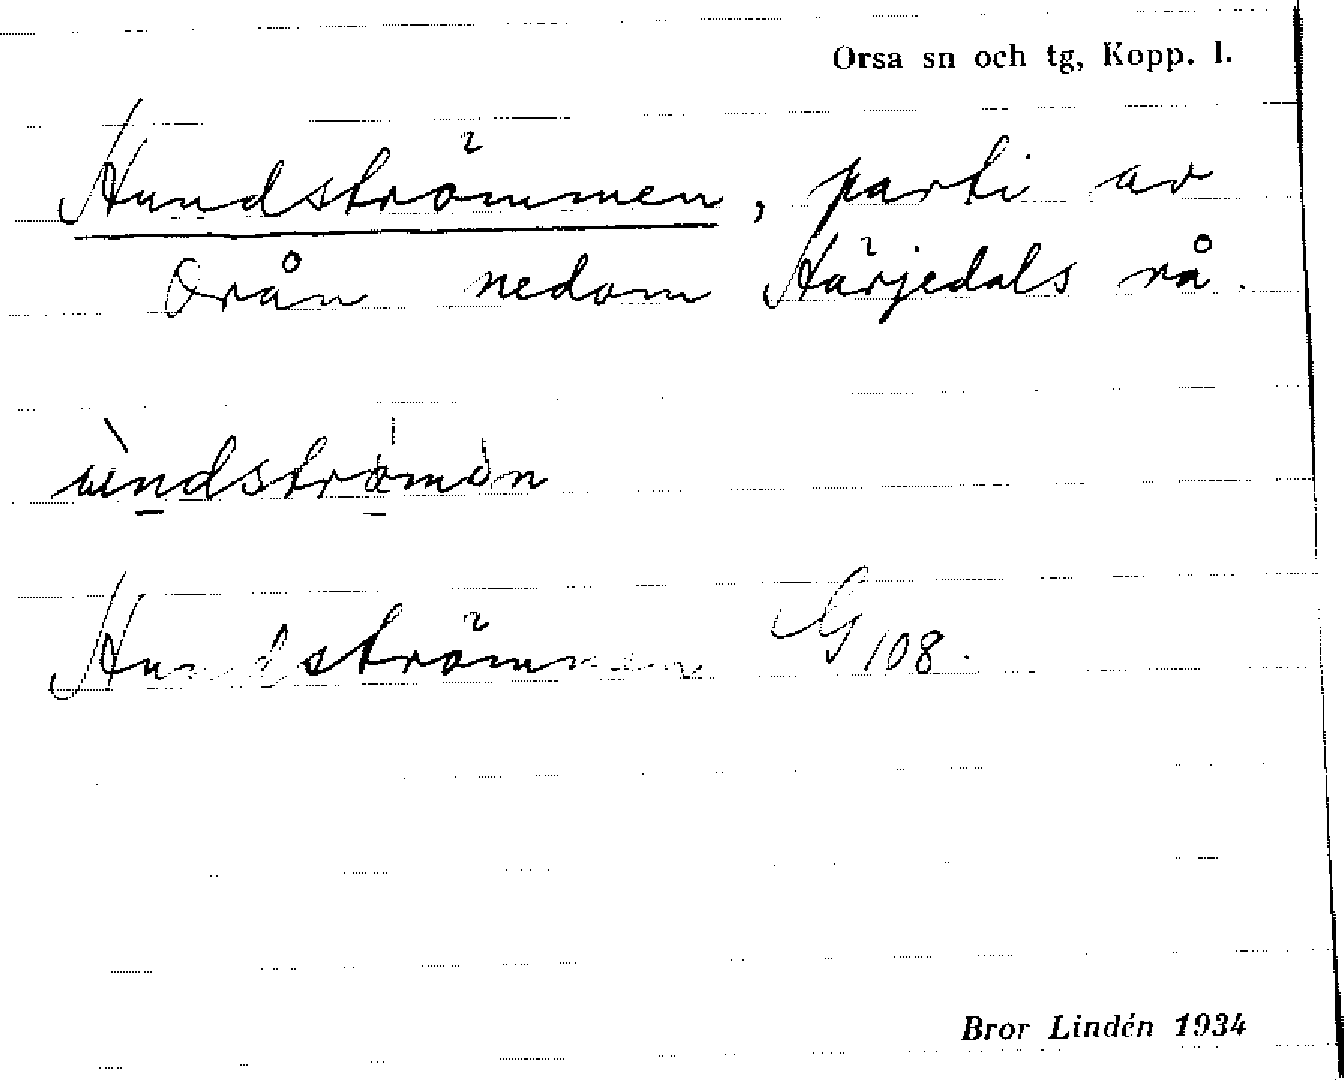 Orsa sn och tg, Kopp. l.
Hundströmmen, parti av
Orån nedom Härjedals rå.
Hundströmmen G 108.
Bror Lindén 1934